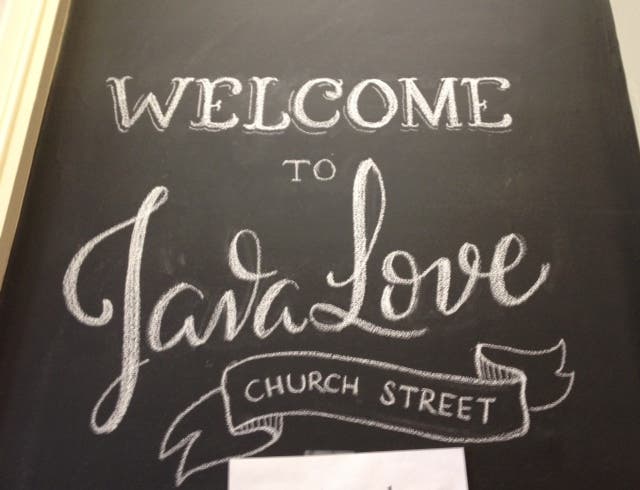 WELCOME
TO
Java Love
CHURCH STREET